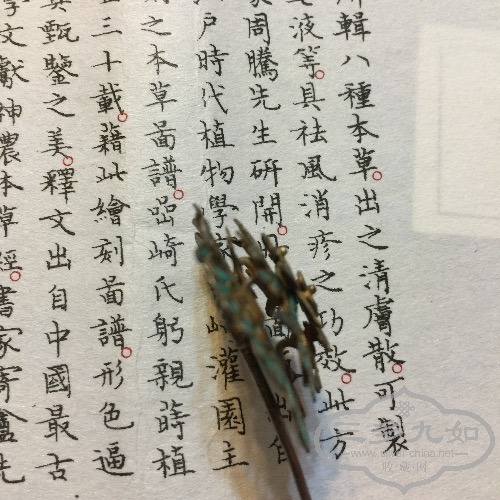 輯八種本草。出之清膚散。可製
液等。具祛風消疹之功效。此方
周騰先生硏開。出自
戶時代植物學灌園主
之本草啚譜。喦崎氏躬親蒔植
三十載。藉此繪刻啚譜。形色逼
甄鑒之美。釋文出自中國最古
文獻神農本草經。書家寄盦先
九如